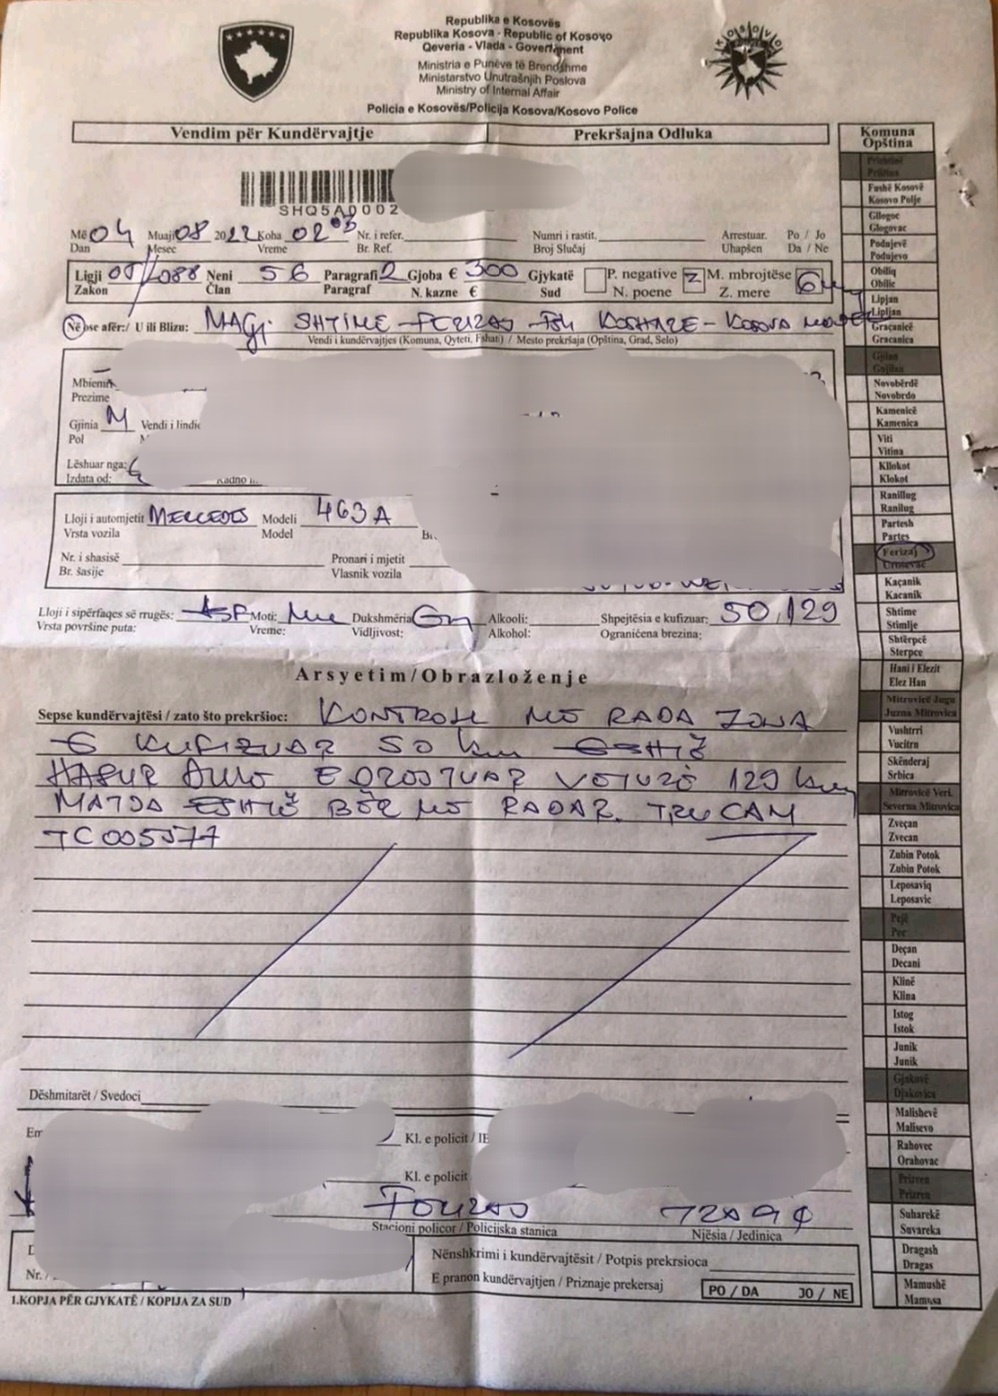 Republika e Kosovës
Republika Kosova - Republic of Kosovo
Qeveria - Vlada - Government
Ministria e Punëve të Brendshme
Ministarstvo Unutrašnjih Poslova
Ministry of Internal Affair
Policia e Kosovës/Policija Kosova/Kosovo Police
Vendim për Kundërvajtje Prekršajna Odluka
SHQ5A0002
Më 04 Muaji 08 2022 Koha 02 Nr. i refer. Numri i rastit. Arrestuar. Po / Jo
Dan Mesec Vreme Br. Ref. Broj Slučaj Uhapšen Da / Ne
Ligji 05/L088 Neni 56 Paragrafi 2 Gjoba € 300 Gjykatë P. negative 2 M. mbrojtëse 6
Zakon Član Paragraf N. kazne € Sud N. poene Z. mere
Në ose afër:/ U ili Blizu: MAGJ. SHTIME - FERIZAJ - KOSHARE - KOSOVA
Vendi i kundërvajtjes (Komuna, Qyteti, Fshati) / Mesto prekršaja (Opština, Grad, Selo)
Mbiemri
Prezime
Gjinia M Vendi i lindj
Pol
Lëshuar nga:
Izdata od:
Lloji i automjetit MERCEDES Modeli 463A
Vrsta vozila Model
Nr. i shasisë Pronari i mjetit
Br. šasije Vlasnik vozila
Lloji i sipërfaqes së rrugës: ASF Moti: Dukshmëria Alkooli: Shpejtësia e kufizuar: 50,129
Vrsta površine puta: Vreme: Vidljivost: Alkohol: Ograničena brezina:
Arsyetim/Obrazloženje
Sepse kundërvajtësi / zato što prekršioc: KONTROLL ME RADA ZONA
E KUFIZUAR 50 km ESHTË
HASUR DUKE 129 km
MATJA ESHTË BËR ME RADAR. TRUCAM
TC005577
Dëshmitarët / Svedoci
Em
Kl. e policit / IE
Kl. e policit
FERIZAJ
Stacioni policor / Policijska stanica Njësia / Jedinica
Nr. /
Nënshkrimi i kundërvajtësit / Potpis prekrsioca
E pranon kundërvajtjen / Priznaje prekersaj PO / DA JO / NE
1.KOPJA PËR GJYKATË / KOPIJA ZA SUD
Komuna
Opština
Prishtinë
Pristina
Fushë Kosovë
Kosovo Polje
Gllogoc
Glogovac
Podujevë
Podujevo
Obiliq
Obilic
Lipjan
Lipljan
Graçanicë
Gracanica
Gjilan
Gnjilan
Novobërdë
Novobrdo
Kamenicë
Kamenica
Viti
Vitina
Kllokot
Klokot
Ranillug
Ranilug
Partesh
Partes
Ferizaj
Urosevac
Kaçanik
Kacanik
Shtime
Stimlje
Shtërpcë
Sterpce
Hani i Elezit
Elez Han
Mitrovicë Jugu
Juzna Mitrovica
Vushtrri
Vucitrn
Skënderaj
Srbica
Mitrovicë Veri.
Severna Mitrovica
Zveçan
Zvecan
Zubin Potok
Zubin Potok
Leposaviq
Leposavic
Pejë
Pec
Deçan
Decani
Klinë
Klina
Istog
Istok
Junik
Junik
Gjakovë
Djakovica
Malishevë
Malisevo
Rahovec
Orahovac
Prizren
Prizren
Suharekë
Suvareka
Dragash
Dragas
Mamushë
Mamusa